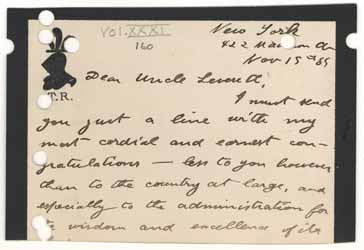 VOl. XXXI
160
New York
422 Madison Av
Nov 15th 89
T.R.
Dear Uncle Leverett,
I must send
you just a line with my
most cordial and earnest con-
gratulations – less to you however
than to the country at large, and
especially to the administration for
wisdom and excellence of its